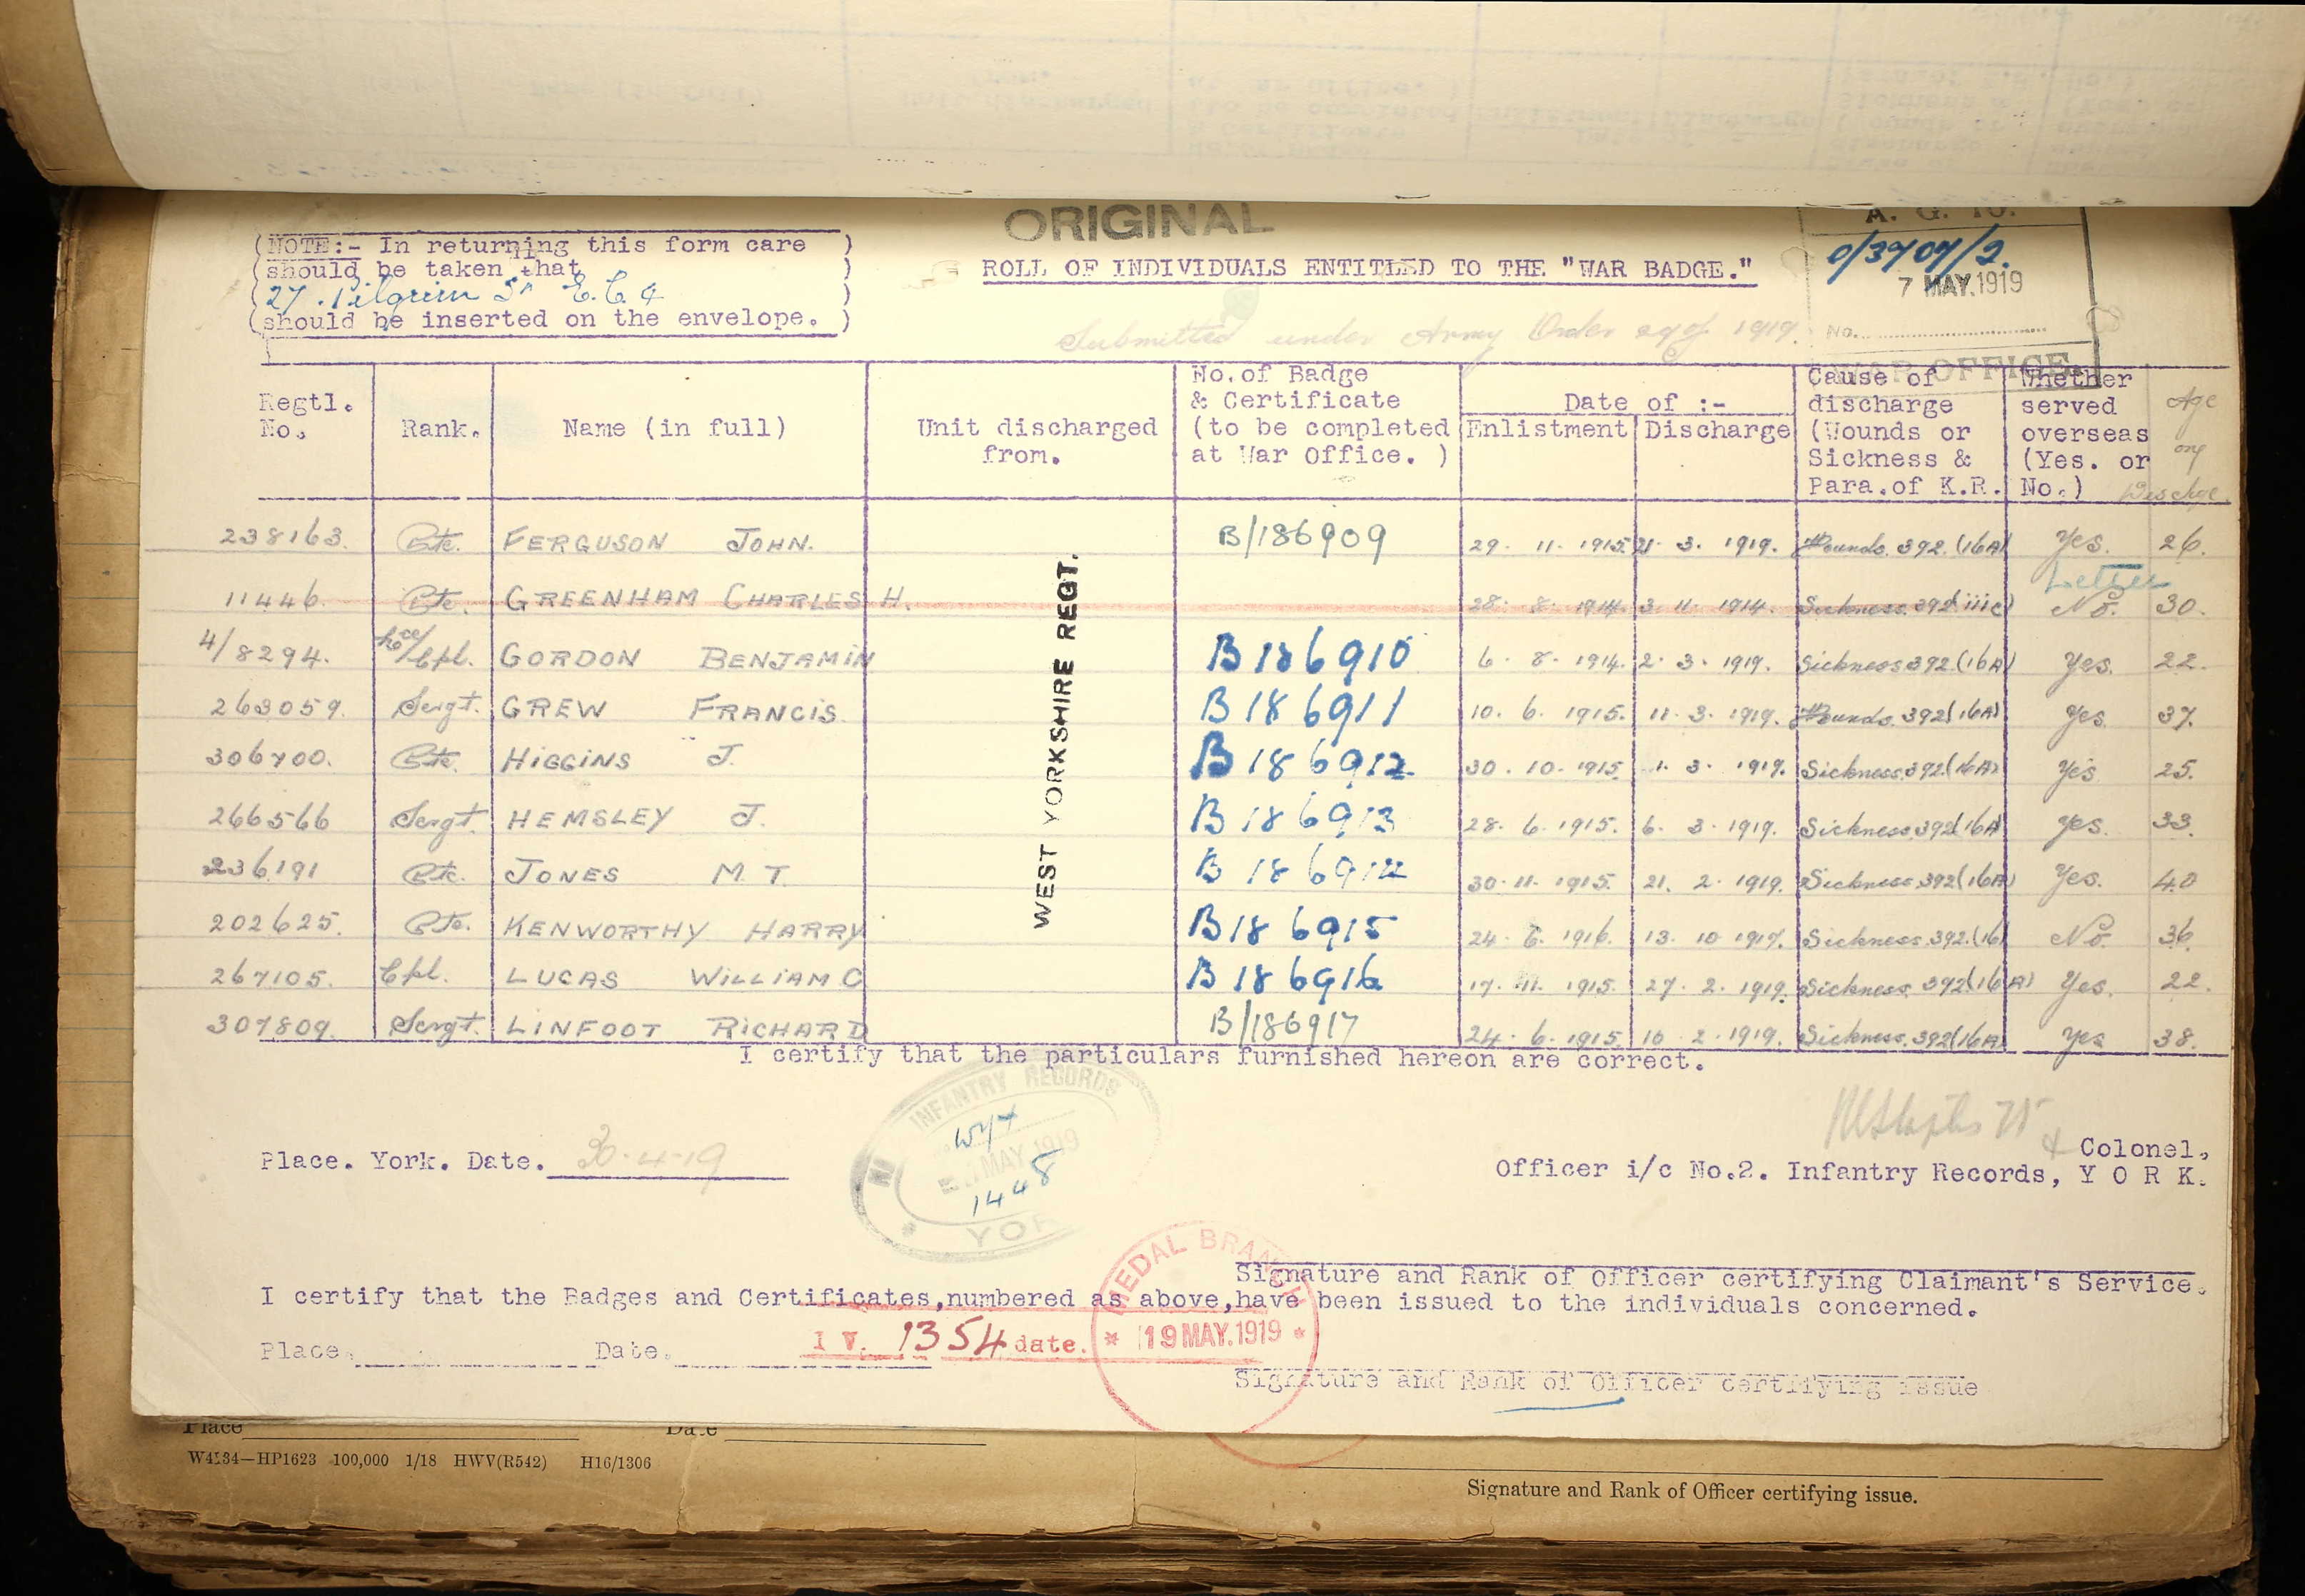 ORIGINAL
A. G. 10.
(NOTE:- In returning this form care )
(should be taken that )
27. Pilgrim St E.C.4
(should be inserted on the envelope. )
ROLL OF INDIVIDUALS ENTITLED TO THE "WAR BADGE."
0/3707/2.
7 MAY.1919
No.
WAR OFFICE
Submitted under Army Order 29 of 1919.
Regtl. No. Rank. Name (in full) Unit discharged from. No. of Badge & Certificate (to be completed at War Office. ) Date of :- Enlistment Discharge Cause of discharge (Wounds or Sickness & Para.of K.R. Whether served overseas (Yes. or No.) Age on Dischge.
WEST YORKSHIRE REGT.
238163. Pte. FERGUSON JOHN. B/186909 29. 11. 1915. 21. 3. 1919. Wounds. 392. (16A) Yes. 26.
Letter
11446. Pte. GREENHAM CHARLES H. 28. 8. 1914. 3. 11. 1914. Sickness. 392(iiic) No. 30.
4/8294. Lce/Cpl. GORDON BENJAMIN B186910 6. 8. 1914. 2. 3. 1919. Sickness 392. (16A) Yes. 22.
263059. Sergt. GREW FRANCIS. B186911 10. 6. 1915. 11. 3. 1919. Wounds. 392(16A) Yes. 37.
306700. Pte. HIGGINS J. B186912 30. 10. 1915. 1. 3. 1919. Sickness. 392(16A) Yes 25.
266566 Sergt. HEMSLEY J. B186913 28. 6. 1915. 6. 3. 1919. Sickness. 392(16A) Yes. 33.
236191 Pte. JONES M. T. B 186914 30. 11. 1915. 21. 2. 1919. Sickness. 392(16A) Yes. 40
202625. Pte. KENWORTHY HARRY B186915 24. 6. 1916. 13. 10 1917. Sickness. 392. (16) No. 36.
267105. Cpl. LUCAS WILLIAM C B186916 17. 11. 1915. 27. 2. 1919. Sickness. 392(16A) Yes. 22.
307809. Sergt. LINFOOT RICHARD B/186917 24. 6. 1915. 10 2. 1919. Sickness. 392(16A) Yes 38.
I certify that the particulars furnished hereon are correct.
INFANTRY RECORDS
MAY 1919
1448
YOR
Place. York. Date. 30-4-19
Colonel,
Officer i/c No.2. Infantry Records, Y O R K.
MEDAL BRAN
Signature and Rank of Officer certifying Claimant's Service.
I certify that the Badges and Certificates,numbered as above,have been issued to the individuals concerned.
Place. Date.
I V. 1354 date.
* 19 MAY.1919 *
Signature and Rank of Officer certifying issue
Place Date
W4134—HP1623 100,000 1/18 HWV(R542) H16/1306
Signature and Rank of Officer certifying issue.